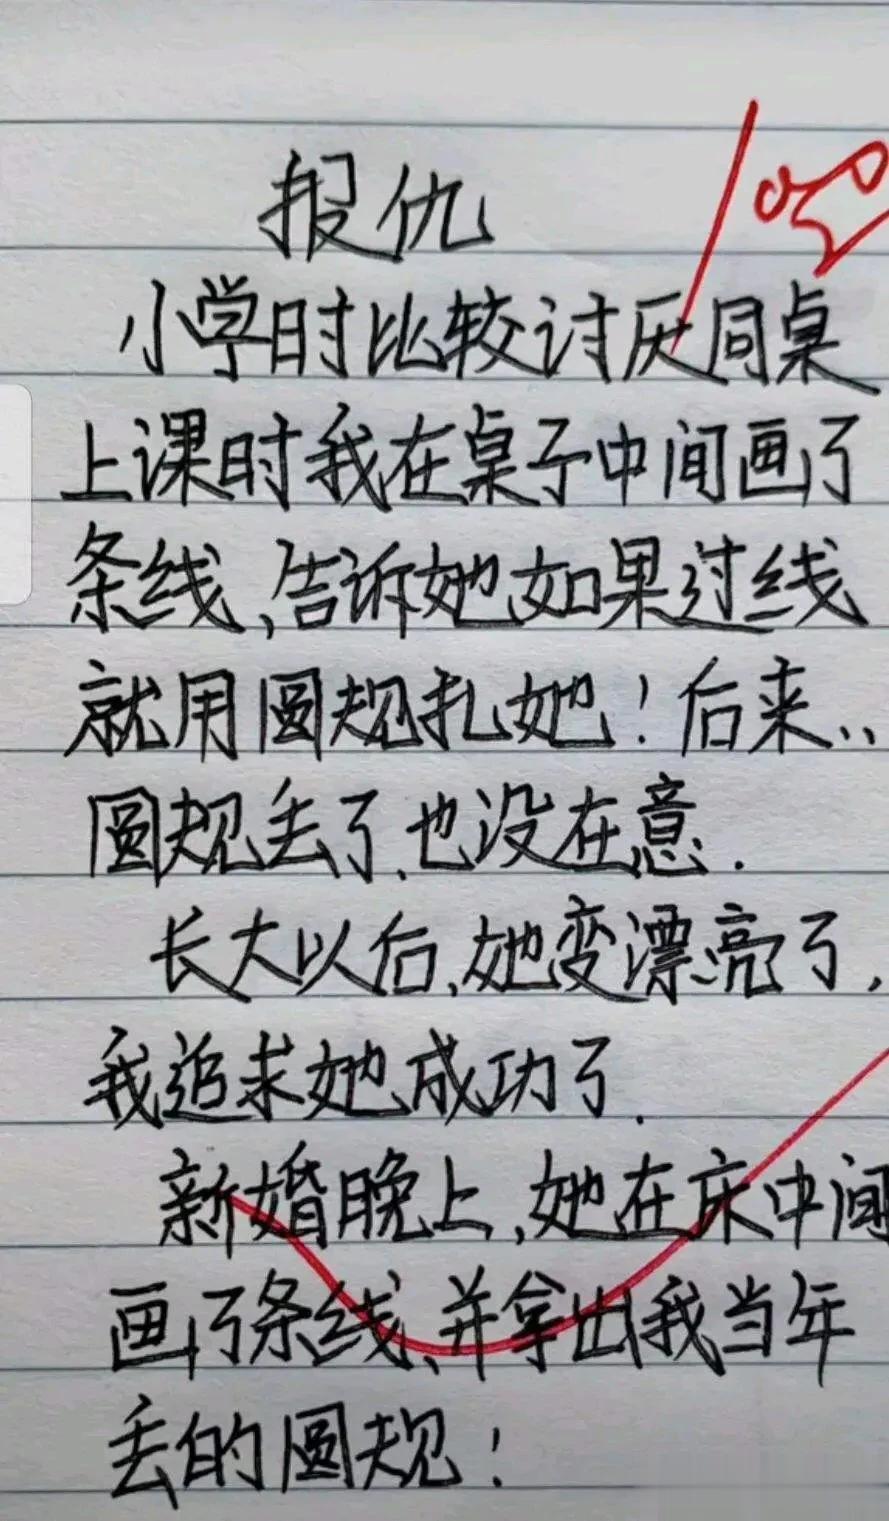 报仇
小学时比较讨厌同桌
上课时我在桌子中间画了
条线、告诉她如果过线
就用圆规扎她！后来..
圆规丢了、也没在意.
长大以后、她变漂亮了,
我追求她成功了.
新婚晚上,她在床中间
画了条线、并拿出我当年
丢的圆规！